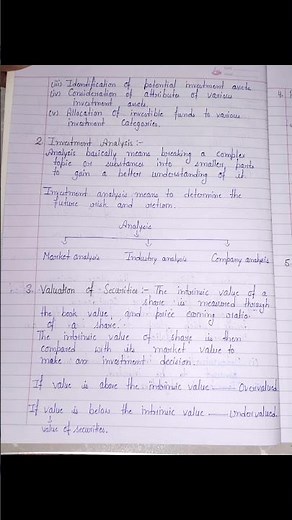 (iii) Identification of potential investment assets
(iv) Consideration of attributes of various
investment assets.
(v) Allocation of investible funds to various
investment categories.
2. Investment Analysis:-
Analysis basically means breaking a complex
topic or substance into smaller parts
to gain a better understanding of it
Investment analysis means to determine the
future risk and return.
Analysis
Market analysis Industry analysis Company analysis
3. Valuation of Securities:- The intrinsic value of a
share is measured through
the book value and price earning ratio
of a share.
The intrinsic value of share is then
compared with its market value to
make an investment decision.
If value is above the intrinsic value —— Overvalued
If value is below the intrinsic value —— Undervalued
value of securities.
4.
5.